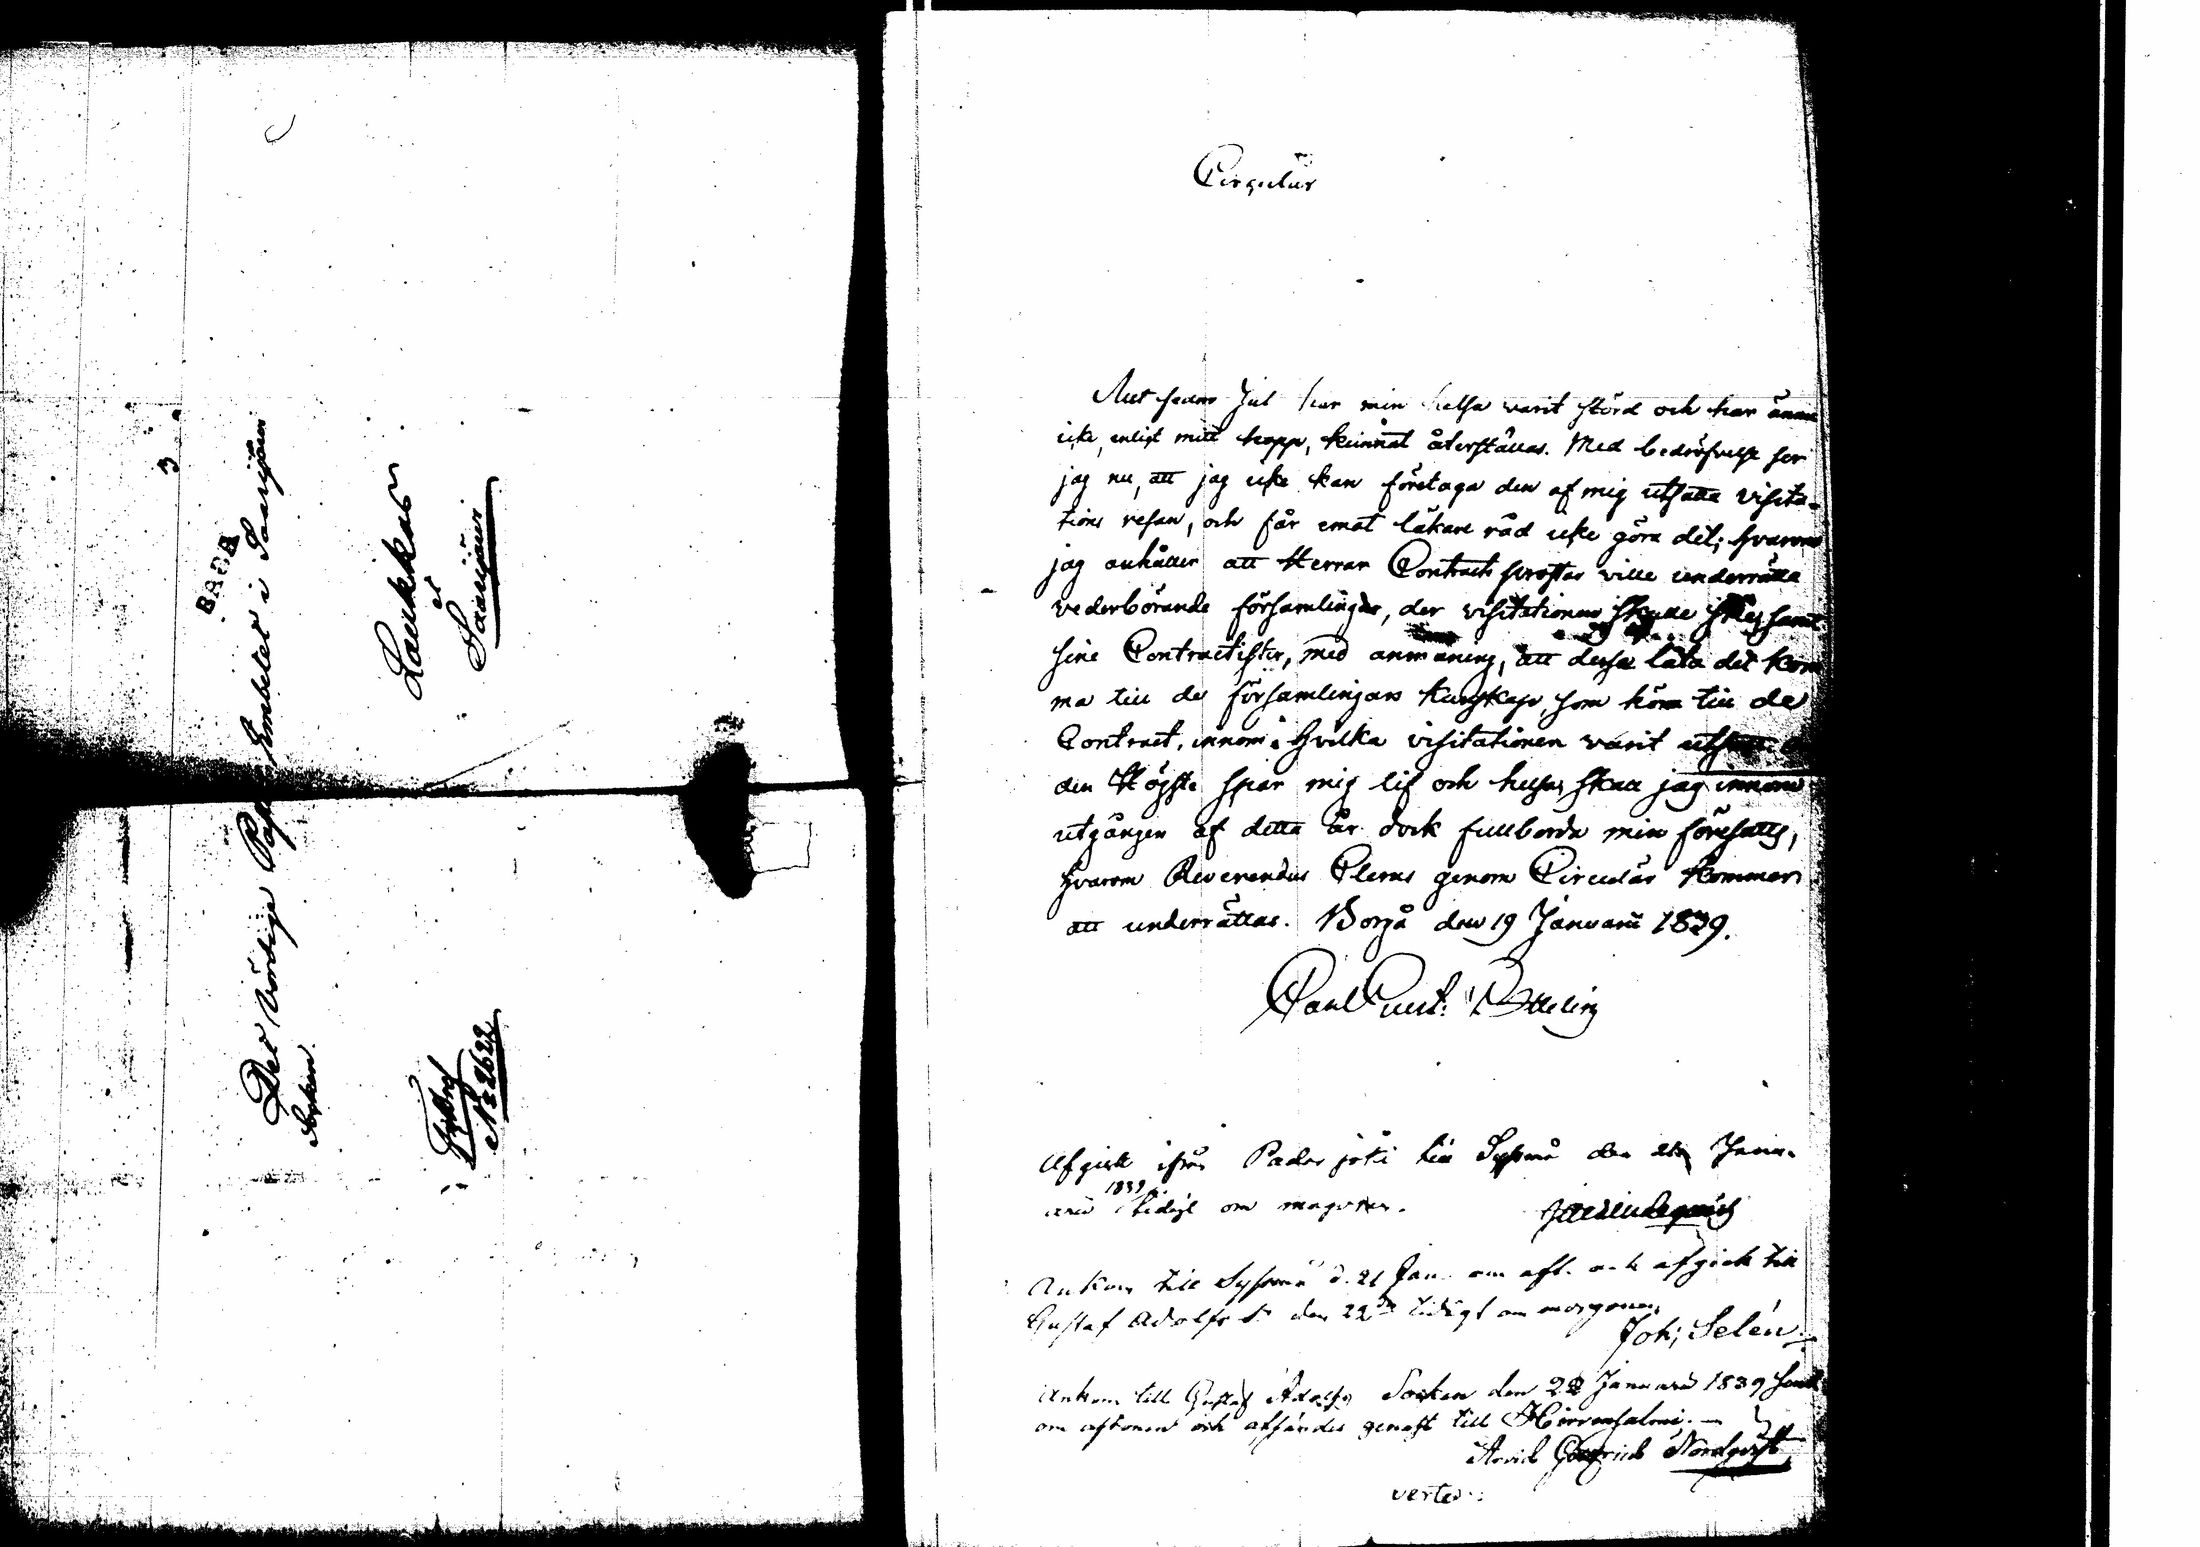 3
BAGA
Det Vördige Pastors Embetet i Saarijärvi
Socken.
Laukkas
et
Saarijärvi
No 2622
Circulär
Allt sedan Jul har min helsa varit störd och har ännu
icke, enligt mitt hopp, kunnat återställas. Med bedröfvelse ser
jag nu, att jag icke kan företaga den af mig utsatta visita-
tions resan, och får emot läkare råd icke göra det; hvarom
jag anhåller att Herrar Contracts prostar ville underrätta
vederbörande församlingar, der visitationen skulle ske, samt
sine Contractister, med anmaning, att dessa låta det kom
ma till de församlingars kunskap, som höra till de
Contract, innom hvilka visitationen varit utsatt.
den Högste spar mig lif och helsa, skall jag innom
utgången af detta år dock fullborda min föresatts,
hvarom Reverendus Clerus genom Circulär kommer
att underrättas. Borgå den 19 Januarii 1839.
Carl Gust: Ottelin
Afgick ifrån Padasjoki till Sysmä den 21 Janu-
arii 1839 tidigt om morgonen.
Ankom till Sysmä d. 21 Jan. om aft. och afgick till
Gustaf Adolfs S. den 22dre tidigt om morgonen
Joh; Selén
Ankom till Gustaf Adolfs Socken den 22 Januarii 1839 sent
om aftonen och afsändes genast till Hirvensalmi.
Arvid Gottfried Nordqvist
verte